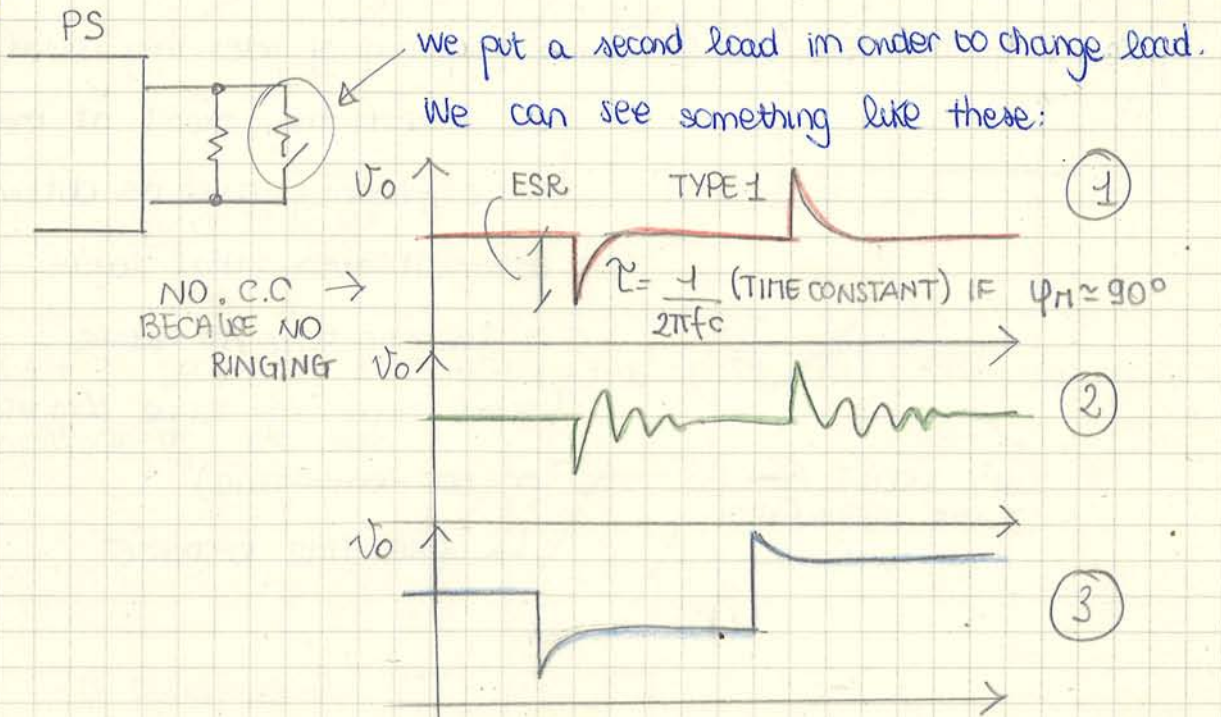 PS
we put a second load in order to change load.
We can see something like these:
Vo
ESR
TYPE 1
1
NO. C.C →
BECAUSE NO
RINGING
τ = 1/2πfc (TIME CONSTANT) IF φM ≃ 90°
Vo
2
Vo
3